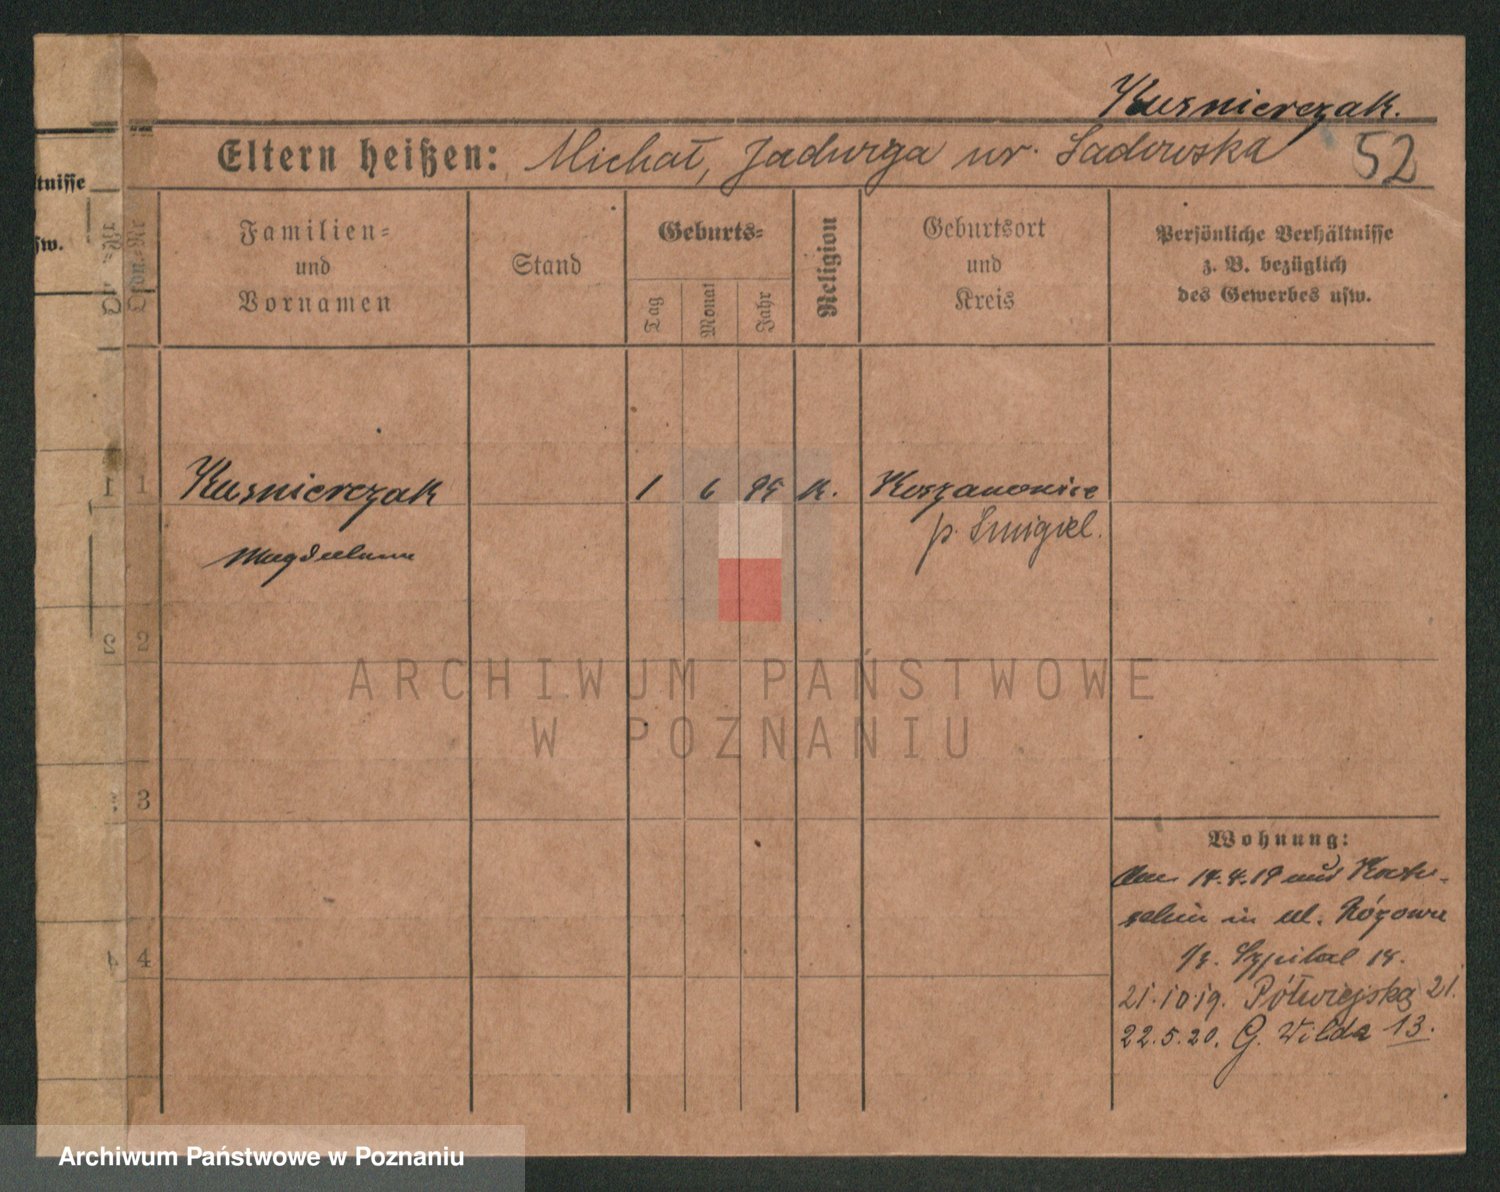 Kusnierczak.
Eltern heißen: Michał, Jadwiga ur. Sadowska 52
ltnisse
sw.
Familien-
und
Vornamen
Stand
Geburts-
Tag
Monat
Jahr
Religion
Geburtsort
und
Kreis
Persönliche Verhältnisse
z. B. bezüglich
des Gewerbes usw.
1 Kusnierczak 1 6 95 k. Koszanowice
Magdalena p. Smigiel.
2
3
4
Wohnung:
14.4.19
in ul. Różowa
Szpital 14.
21.10.19. Półwiejska 21.
22.5.20. G. Wilda 13.
ARCHIWUM PAŃSTWOWE
W POZNANIU
Archiwum Państwowe w Poznaniu